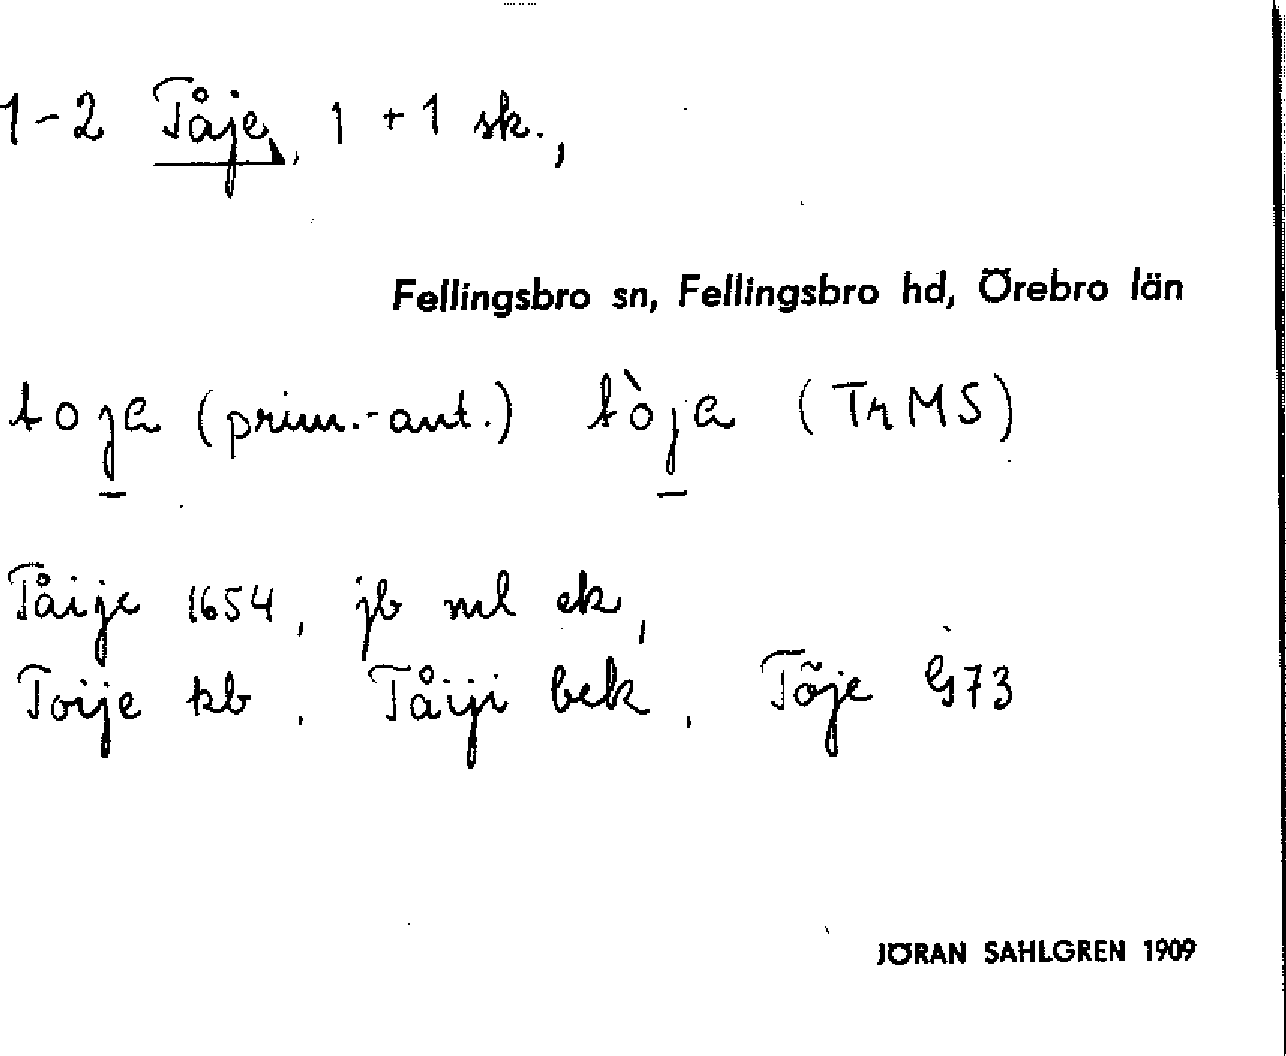 1-2 Tåje, 1 + 1 sk.,
Fellingsbro sn, Fellingsbro hd, Örebro län
toja (prim.-ant.) tòja (TrMS)
Tåije 1654, jb ml ek,
Toije kb, Tåiji bek, Tõje G73
JÖRAN SAHLGREN 1909